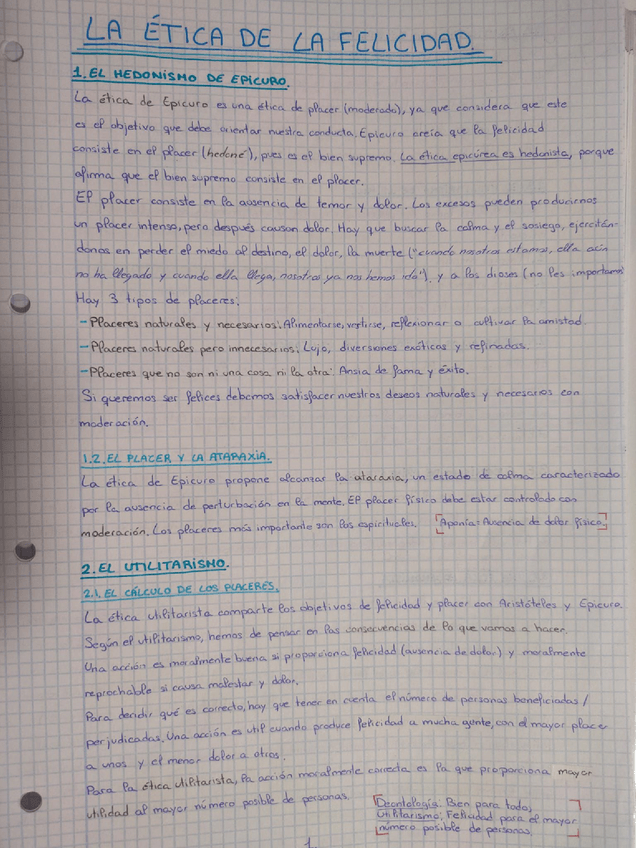 LA ÉTICA DE LA FELICIDAD.
1. EL HEDONISMO DE EPICURO.
La ética de Epicuro es una ética de placer (moderado), ya que considera que este
es el objetivo que debe orientar nuestra conducta. Epicuro creía que la felicidad
consiste en el placer (hedoné), pues es el bien supremo. La ética epicúrea es hedonista, porque
afirma que el bien supremo consiste en el placer.
El placer consiste en la ausencia de temor y dolor. Los excesos pueden producirnos
un placer intenso, pero después causan dolor. Hay que buscar la calma y el sosiego, ejercitán-
donos en perder el miedo al destino, el dolor, la muerte ("cuando nosotros estamos, ella aún
no ha llegado y cuando ella llega, nosotros ya nos hemos ido"), y a los dioses (no les importamos
Hay 3 tipos de placeres:
- Placeres naturales y necesarios: Alimentarse, vertirse, reflexionar o cultivar la amistad.
- Placeres naturales pero innecesarios: Lujo, diversiones exóticas y refinadas.
- Placeres que no son ni una cosa ni la otra: Ansia de fama y éxito.
Si queremos ser felices debemos satisfacer nuestros deseos naturales y necesarios con
moderación.
1.2. EL PLACER Y LA ATARAXIA.
La ética de Epicuro propone alcanzar la ataraxia, un estado de calma caracterizado
por la ausencia de perturbación en la mente. El placer físico debe estar controlado con
moderación. Los placeres más importante son los espirituales. [Aponía: Ausencia de dolor físico.]
2. EL UTILITARISMO.
2.1. EL CÁLCULO DE LOS PLACERES.
La ética utilitarista comparte los objetivos de felicidad y placer con Aristóteles y Epicuro.
Según el utilitarismo, hemos de pensar en las consecuencias de lo que vamos a hacer.
Una acción es moralmente buena si proporciona felicidad (ausencia de dolor) y moralmente
reprochable si causa malestar y dolor.
Para decidir qué es correcto, hay que tener en cuenta el número de personas beneficiadas /
perjudicadas. Una acción es util cuando produce felicidad a mucha gente, con el mayor placer
a unos y el menor dolor a otros.
Para la ética utilitarista, la acción moralmente correcta es la que proporciona mayor
utilidad al mayor número posible de personas.
[Deontología: Bien para todo,
Utilitarismo: Felicidad para el mayor
número posible de personas.]
1.